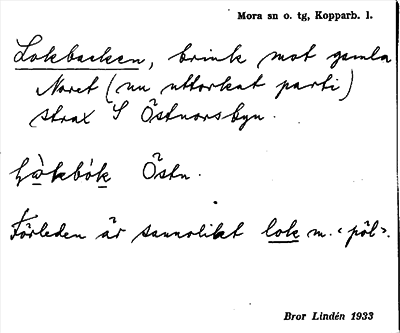 Mora sn o. tg, Kopparb. l.
Lokbacken, brink mot gamla
Noret (nu uttorkat parti)
strax S Östnorsbyn.
Lòkbók Östn.
Förleden är sannolikt lok m. ‹pöl›.
Bror Lindén 1933